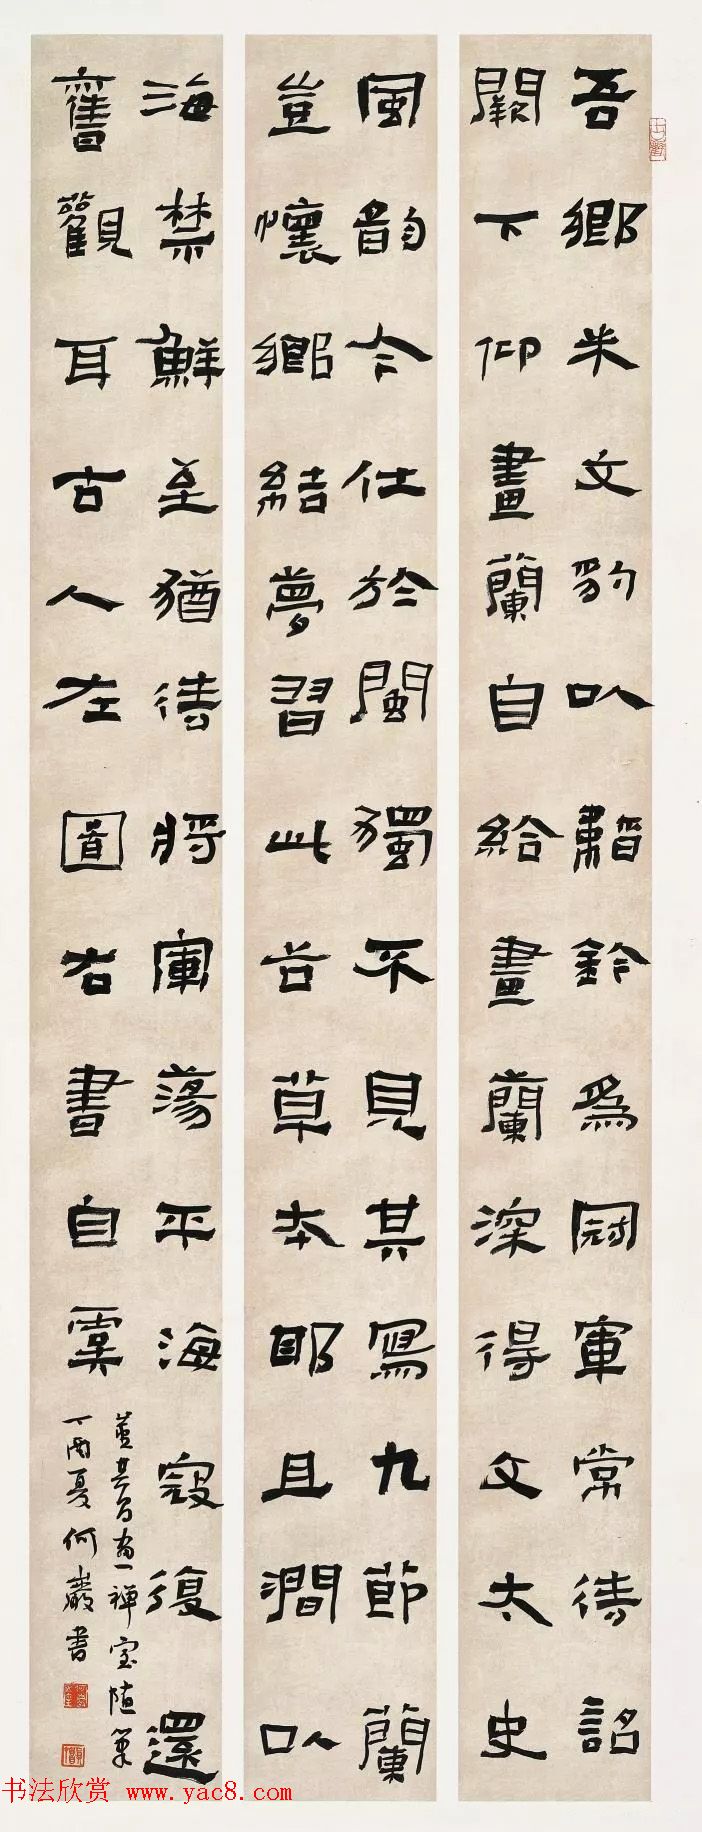 吾鄉米文豹以韜鈐為冠軍常待詔
闕下仰畫蘭自給畫蘭深得文太史
風韵今仕於閩獨不見其寫九節蘭
豈懷鄉結夢習此谷草本耶且澗以
海禁鮮至猶待將軍蕩平海寇復還
舊觀耳古人左圖右書自
董其昌畫禪室随筆
丁酉夏何巖書
书法欣赏 www.yac8.com